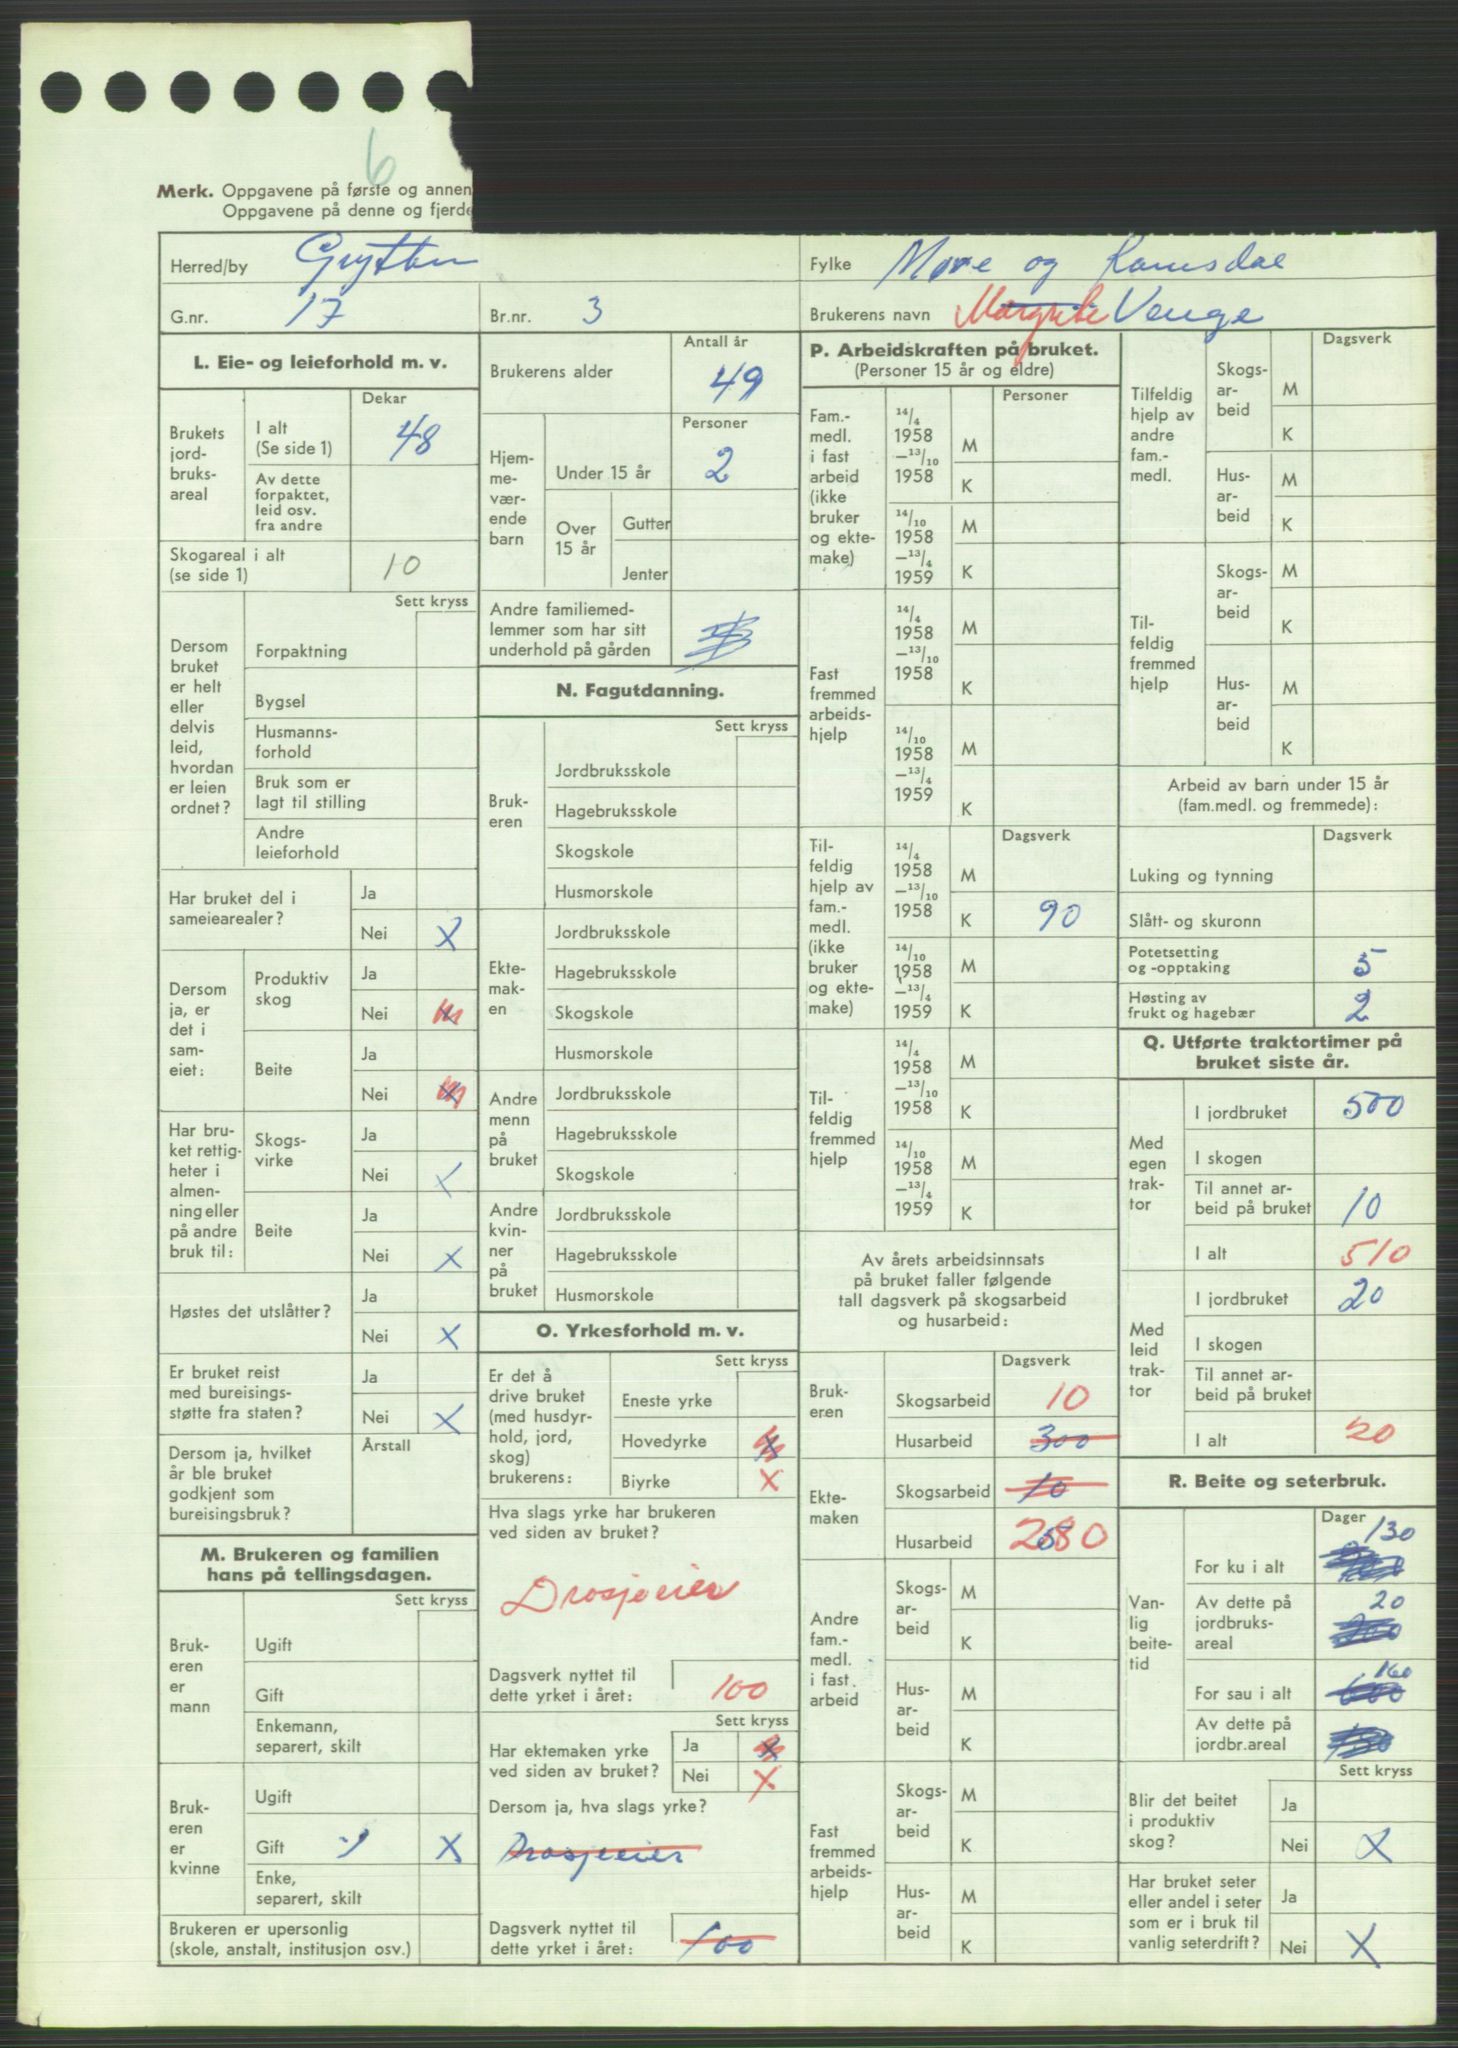 6
Merk. Oppgavene på første og annen
Oppgavene på denne og fjerde
Herred/by Grytten
Fylke Møre og Romsdal
G.nr. 17
Br.nr. 3
Brukerens navn Venge
L. Eie- og leieforhold m. v.
Dekar
Brukets jord- bruks- areal
I alt (Se side 1) 48
Av dette forpaktet, leid osv. fra andre
Skogareal i alt (se side 1) 10
Sett kryss
Dersom bruket er helt eller delvis leid, hvordan er leien ordnet?
Forpaktning
Bygsel
Husmanns- forhold
Bruk som er lagt til stilling
Andre leieforhold
Har bruket del i sameiearealer?
Ja
Nei X
Dersom ja, er det i sam- eiet:
Produktiv skog
Ja
Nei
Beite
Ja
Nei
Har bru- ket rettig- heter i almen- ning eller på andre bruk til:
Skogs- virke
Ja
Nei X
Beite
Ja
Nei X
Høstes det utslåtter?
Ja
Nei X
Er bruket reist med bureisings- støtte fra staten?
Ja
Nei X
Dersom ja, hvilket år ble bruket godkjent som bureisingsbruk?
Årstall
M. Brukeren og familien hans på tellingsdagen.
Sett kryss
Bruk- eren er mann
Ugift
Gift
Enkemann, separert, skilt
Bruk- eren er kvinne
Ugift
Gift X
Enke, separert, skilt
Brukeren er upersonlig (skole, anstalt, institusjon osv.)
Antall år
Brukerens alder 49
Personer
Hjem- me- vær- ende barn
Under 15 år 2
Over 15 år
Gutter
Jenter
Andre familiemed- lemmer som har sitt underhold på gården
N. Fagutdanning.
Sett kryss
Bruk- eren
Jordbruksskole
Hagebruksskole
Skogskole
Husmorskole
Ekte- mak- en
Jordbruksskole
Hagebruksskole
Skogskole
Husmorskole
Andre menn på bruket
Jordbruksskole
Hagebruksskole
Skogskole
Andre kvin- ner på bruket
Jordbruksskole
Hagebruksskole
Husmorskole
O. Yrkesforhold m. v.
Sett kryss
Er det å drive bruket (med husdyr- hold, jord, skog) brukerens:
Eneste yrke
Hovedyrke X
Biyrke X
Hva slags yrke har brukeren ved siden av bruket?
Drosjeeier
Dagsverk nyttet til dette yrket i året: 100
Sett kryss
Har ektemaken yrke ved siden av bruket?
Ja X
Nei X
Dersom ja, hva slags yrke?
Drosjeeier
Dagsverk nyttet til dette yrket i året: 100
P. Arbeidskraften på bruket.
(Personer 15 år og eldre)
Personer
Fam.- medl. i fast arbeid (ikke bruker og ekte- make)
14/4 1958 —13/10 1958
M
K
14/10 1958 —13/4 1959
M
K
Fast fremmed arbeids- hjelp
14/4 1958 —13/10 1958
M
K
14/10 1958 —13/4 1959
M
K
Dagsverk
Til- feldig hjelp av fam.- medl. (ikke bruker og ekte- make)
14/4 1958 —13/10 1958
M
K 90
14/10 1958 —13/4 1959
M
K
Til- feldig fremmed hjelp
14/4 1958 —13/10 1958
M
K
14/10 1958 —13/4 1959
M
K
Av årets arbeidsinnsats på bruket faller følgende tall dagsverk på skogsarbeid og husarbeid:
Dagsverk
Bruk- eren
Skogsarbeid 10
Husarbeid 300
Ekte- maken
Skogsarbeid 10
Husarbeid 280
Andre fam.- medl. i fast arbeid
Skogs- ar- beid
M
K
Hus- ar- beid
M
K
Fast fremmed arbeids- hjelp
Skogs- ar- beid
M
K
Hus- ar- beid
M
K
Dagsverk
Tilfeldig hjelp av andre fam.- medl.
Skogs- ar- beid
M
K
Hus- ar- beid
M
K
Til- feldig fremmed hjelp
Skogs- ar- beid
M
K
Hus- ar- beid
M
K
Arbeid av barn under 15 år (fam.medl. og fremmede):
Dagsverk
Luking og tynning
Slått- og skuronn
Potetsetting og -opptaking 5
Høsting av frukt og hagebær 2
Q. Utførte traktortimer på bruket siste år.
Med egen trak- tor
I jordbruket 500
I skogen
Til annet ar- beid på bruket 10
I alt 510
Med leid trak- tor
I jordbruket 20
I skogen
Til annet ar- beid på bruket
I alt 20
R. Beite og seterbruk.
Dager
Van- lig beite- tid
For ku i alt 130
Av dette på jordbruks- areal 20
For sau i alt 160
Av dette på jordbr.areal
Sett kryss
Blir det beitet i produktiv skog?
Ja
Nei X
Har bruket seter eller andel i seter som er i bruk til vanlig seterdrift?
Ja
Nei X